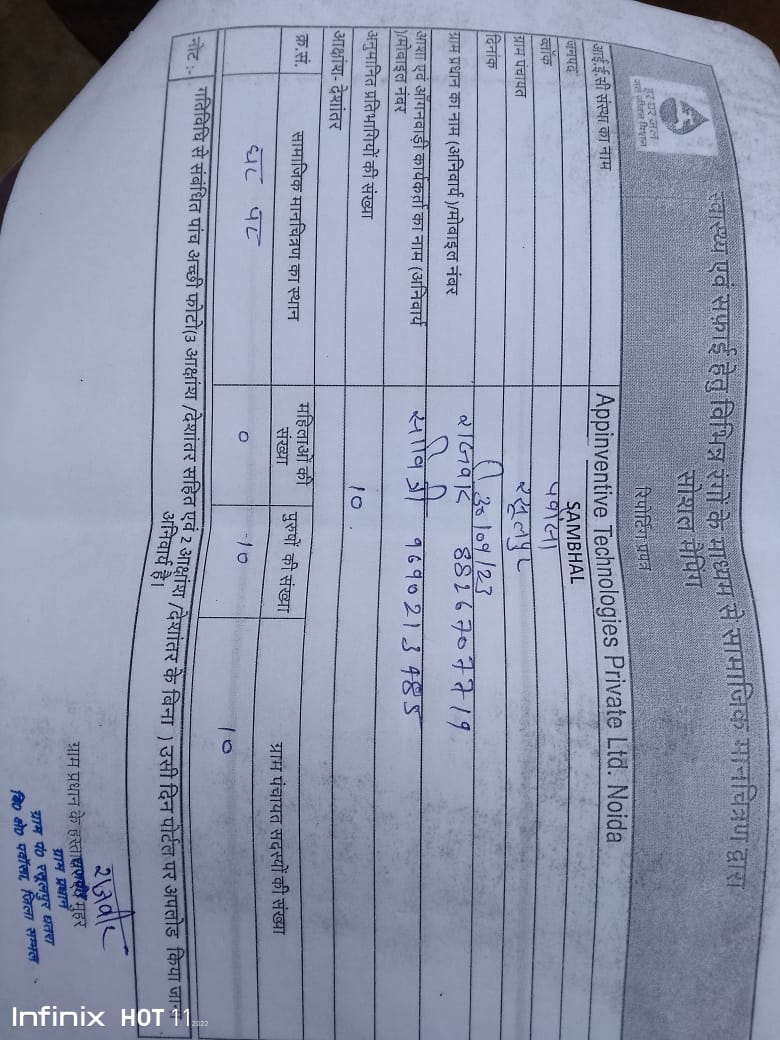 हर घर जल
जल जीवन मिशन
स्वास्थ्य एवं सफ़ाई हेतु विभिन्न रंगों के माध्यम से सामाजिक मानचित्रण द्वारा
सोशल मैपिंग
रिपोर्टिंग प्रपत्र
आई.ई.सी संस्था का नाम Appinventive Technologies Private Ltd. Noida
जनपद SAMBHAL
ब्लॉक पवांसा
ग्राम पंचायत रसूलपुर
दिनांक 30/09/23
ग्राम प्रधान का नाम (अनिवार्य )/मोबाइल नंबर राजवीर
आशा एवं आँगनवाड़ी कार्यकर्ता का नाम (अनिवार्य सावित्री
)/मोबाइल नंबर
अनुमानित प्रतिभागियों की संख्या 10
आक्षांश- देशांतर
क्र.सं. सामाजिक मानचित्रण का स्थान महिलाओं की संख्या पुरुषों की संख्या ग्राम पंचायत सदस्यों की संख्या
0 10 10
नोट :- गतिविधि से संबंधित पांच अच्छी फोटो(3 आक्षांश /देशांतर सहित एवं 2 आक्षांश /देशांतर के बिना ) उसी दिन पोर्टल पर अपलोड किया जाना
अनिवार्य है।
राजवीर
ग्राम प्रधान के हस्ताक्षर एवं मुहर
ग्राम प्रधान
ग्राम पं० रसूलपुर धतरा
वि० क्षे० पवांसा, जिला सम्भल
Infinix HOT 11 2022